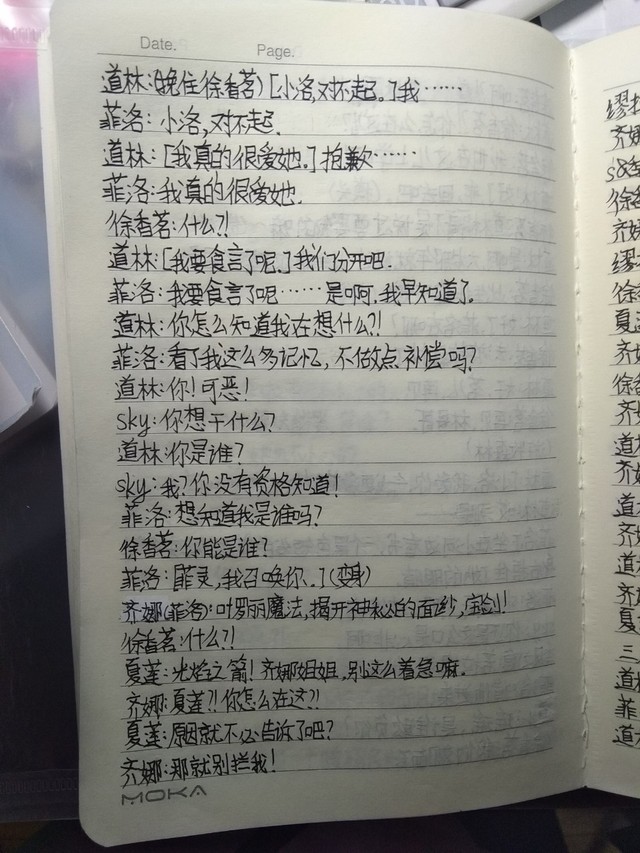 Date.
Page.
道林:(挽住徐香茗)[小洛,对不起。]我……
菲洛:小洛,对不起.
道林:[我真的很爱她.]抱歉……
菲洛:我真的很爱她.
徐香茗:什么?!
道林:[我要食言了呢.]我们分开吧.
菲洛:我要食言了呢……是啊.我早知道了.
道林:你怎么知道我在想什么?!
菲洛:看了我这么多记忆,不做点补偿吗?
道林:你!可恶!
sky:你想干什么?
道林:你是谁?
sky:我?你没有资格知道!
菲洛:想知道我是谁吗?
徐香茗:你能是谁?
菲洛:[菲灵,我召唤你..](变身)
齐娜(菲洛):叶罗丽魔法,揭开神秘的面纱,宝剑!
徐香茗:什么?!
夏莲:光焰之箭!齐娜姐姐,别这么着急嘛.
齐娜:夏莲?!你怎么在这?!
夏莲:原因就不必告诉了吧?
齐娜:那就别拦我!
MOKA
齐娜
sky
徐香
齐娜
徐香
夏莲
齐娜
徐香
齐
道林
齐娜
道
齐
道
齐
夏
三
道林
菲
道